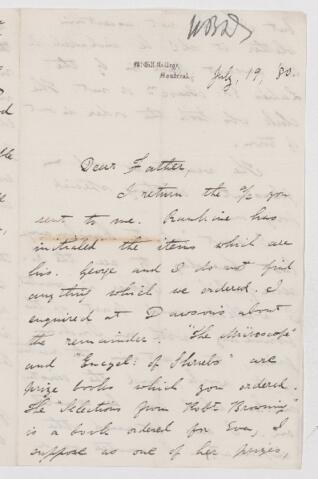 WBD
McGill College,
Montreal.
July, 19, 80.
Dear Father,
I return the a/c you
sent to me. Rankine has
initialed the items which are
his. George and I do not find
anything which we ordered. I
enquired at Dawson's about
the remainder. "The Microscope"
and "Encycl: of Shrubs" are
prize books which you ordered.
The "Selections from Robt Browning"
is a book ordered for Eva, I
suppose as one of her prizes,